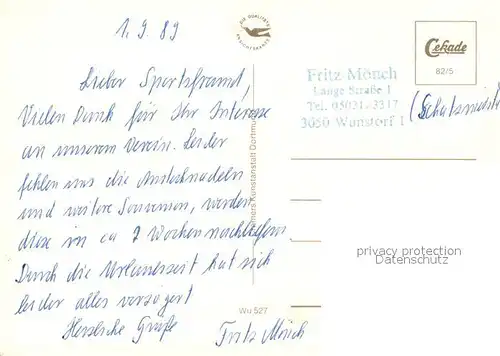 1.9.89
DIE QUALITÄTS
ANSICHTSKARTE
Cekade
82/5
Fritz Mönch
Lange Straße 1
Tel. 05031-3317
3050 Wunstorf 1
(Schatzmeister
Lieber Sportsfreund,
Vielen Dank für Ihr Interesse
an unserem Verein. Leider
fehlen uns die Anstecknadeln
und weitere Souvenirs, werden
diese in ca 2 Wochen nachliefern
Durch die Urlaubszeit hat sich
leider alles verzögert
Herzliche Grüße
Fritz Mönch
Kunstanstalt Dortmund
Wu 527
privacy protection
Datenschutz